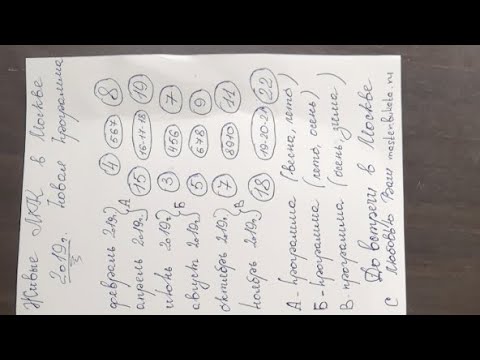 Живые в Москве
2019г. Новая программа
февраль 2019г. 4 567 8
апрель 2019г. А 15 16-17-18 19
июнь 2019г 3 456 7
август 2019г Б 5 678 9
октябрь 2019г 7 8910 11
ноябрь 2019г В 18 19-20-21 22
А - программа (весна, лето)
Б - программа (лето, осень)
В - программа (осень, зима)
До встречи в Москве
С Любовью Ваш